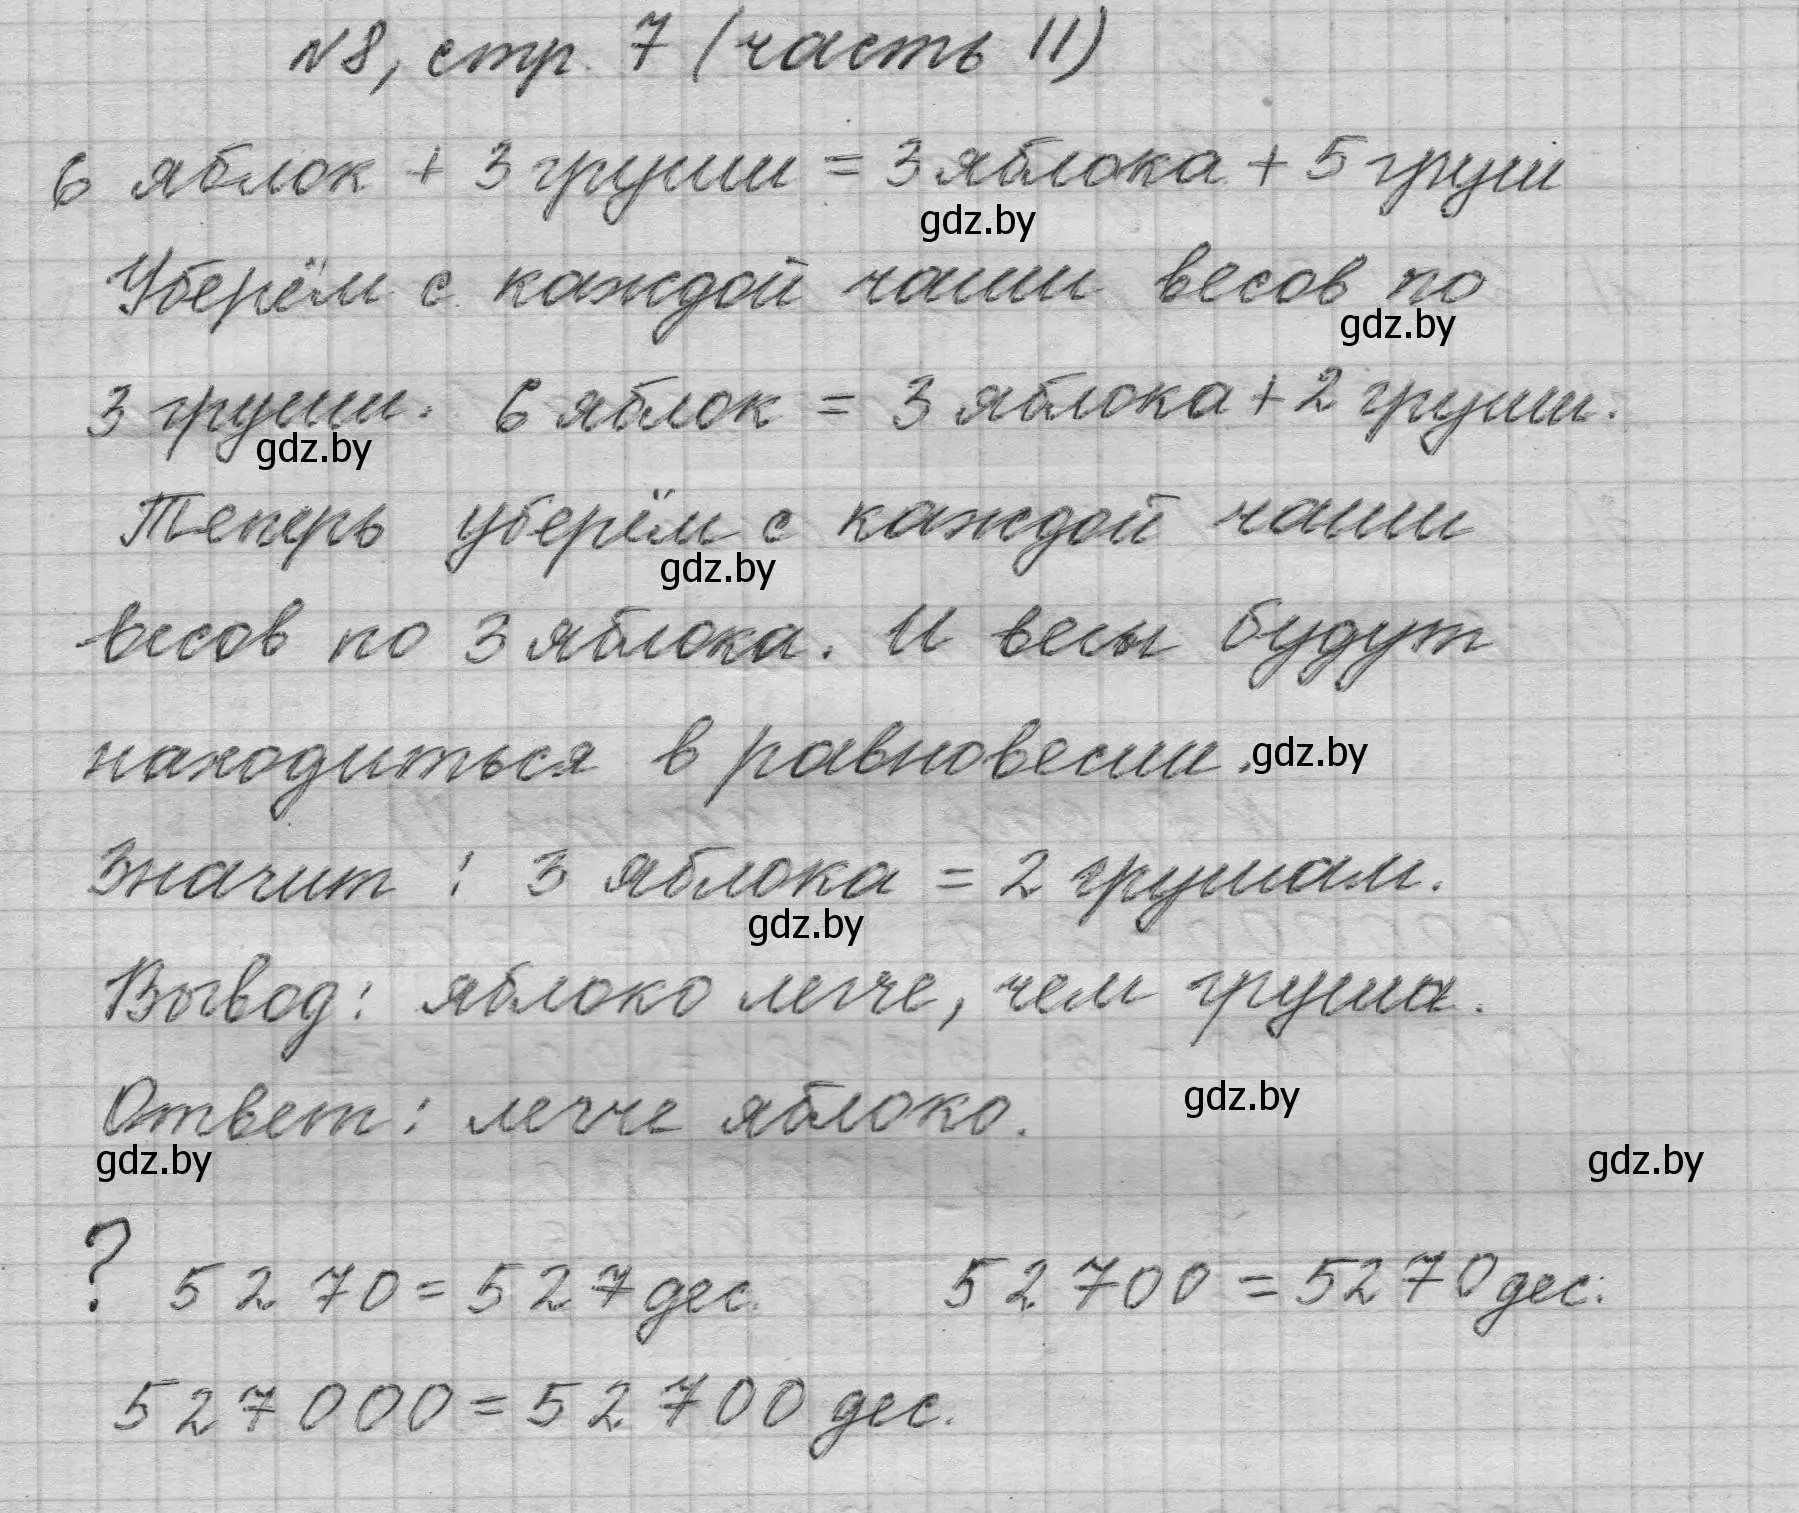 №8, стр. 7 (часть II)
6 яблок + 3 груши = 3 яблока + 5 груш
gdz.by
Уберём с каждой чаши весов по
gdz.by
3 груши. 6 яблок = 3 яблока + 2 груши.
gdz.by
Теперь уберём с каждой чаши
gdz.by
весов по 3 яблока. И весы будут
находиться в равновесии. gdz.by
Значит: 3 яблока = 2 грушам.
gdz.by
Вывод: яблоко легче, чем груша.
Ответ: легче яблоко. gdz.by
gdz.by gdz.by
? 5270 = 527 дес. 52700 = 5270 дес.
527000 = 52700 дес.